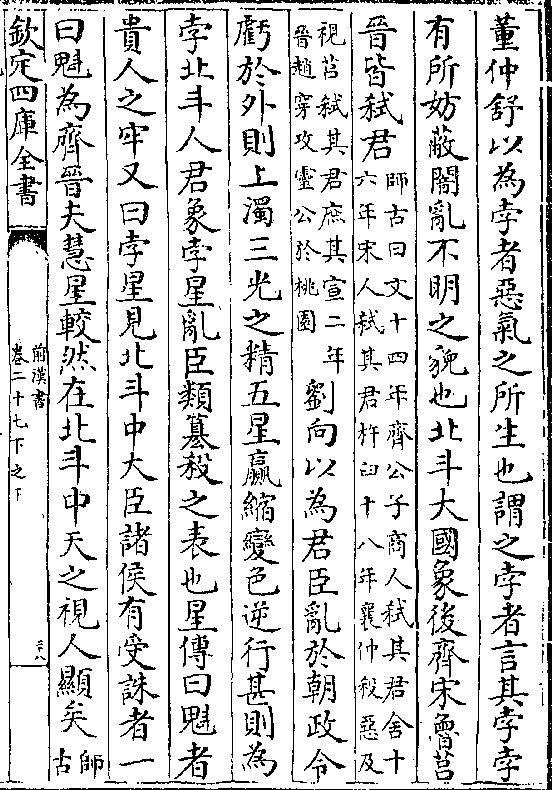 董仲舒以為孛者惡氣之所生也謂之孛者言其孛孛
有所妨蔽闇亂不明之貌也北斗大國象後齊宋魯莒
晉皆弒君師古曰文十四年齊公子商人弒其君舍十
六年宋人弒其君杵臼十八年襄仲殺惡及
視莒弒其君庶其宣二年
晉趙穿攻靈公於桃園劉向以為君臣亂於朝政令
虧於外則上濁三光之精五星贏縮變色逆行甚則為
孛北斗人君象孛星亂臣類篡殺之表也星傳曰魁者
貴人之牢又曰孛星見北斗中大臣諸侯有受誅者一
曰魁為齊晉夫彗星較然在北斗中天之視人顯矣師
古
欽定四庫全書
前漢書
卷二十七下之下
二十八